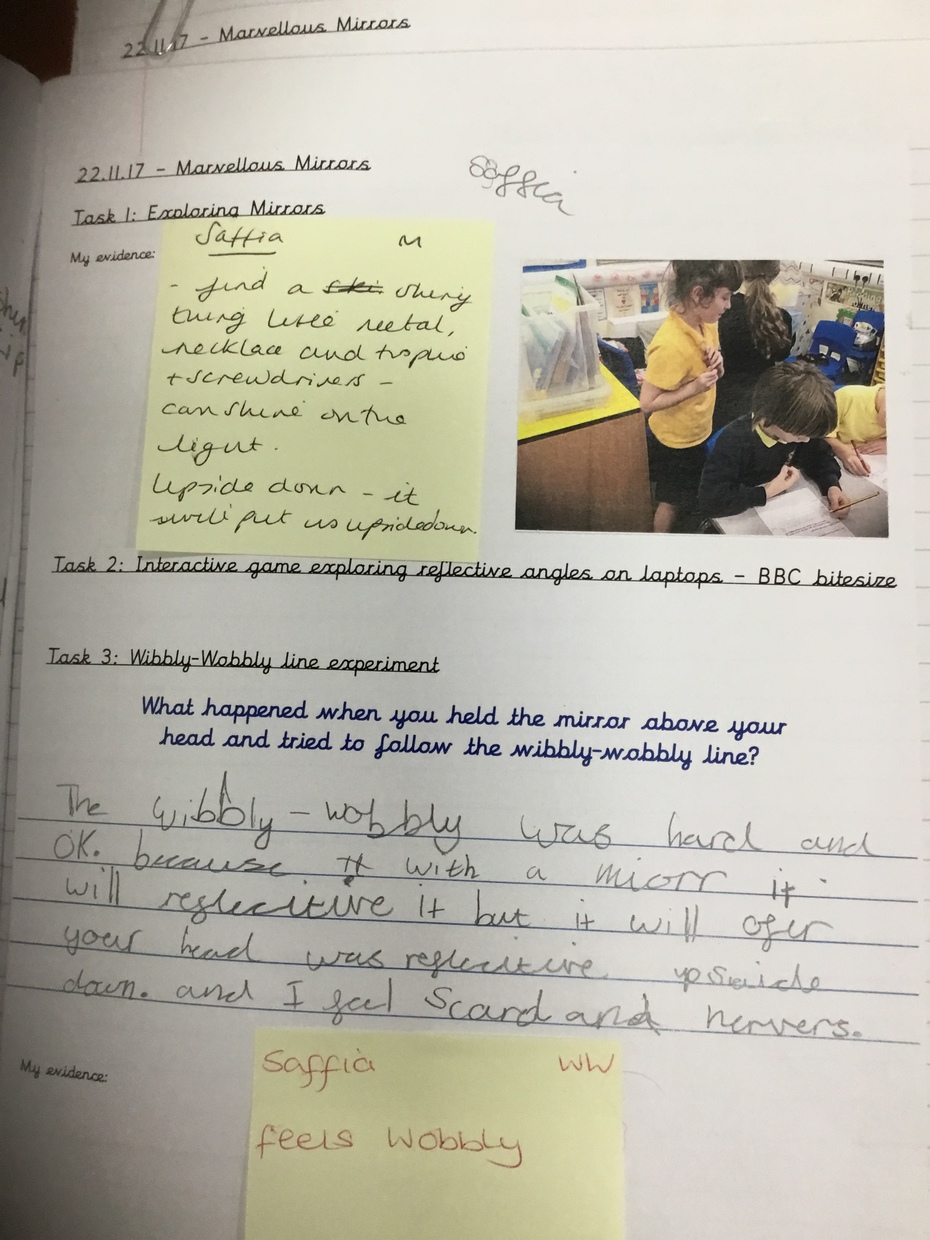 22.11.17 - Marvellous Mirrors
22.11.17 - Marvellous Mirrors
Saffia
Task 1: Exploring Mirrors
My evidence:
Saffia M
- find a shiny
thing like metal,
necklace and
+ screwdrivers -
can shine on the
light.
Upside down - it
will put us upsidedown.
Task 2: Interactive game exploring reflective angles on laptops - BBC bitesize
Task 3: Wibbly-Wobbly line experiment
What happened when you held the mirror above your
head and tried to follow the wibbly-wobbly line?
The wibbly-wobbly was hard and
OK. because it with a miorr it
will reflecitive it but it will ofer
your head was reflecitive upsaide
down. and I feel Scard and nervers.
My evidence:
Saffia WW
feels wobbly